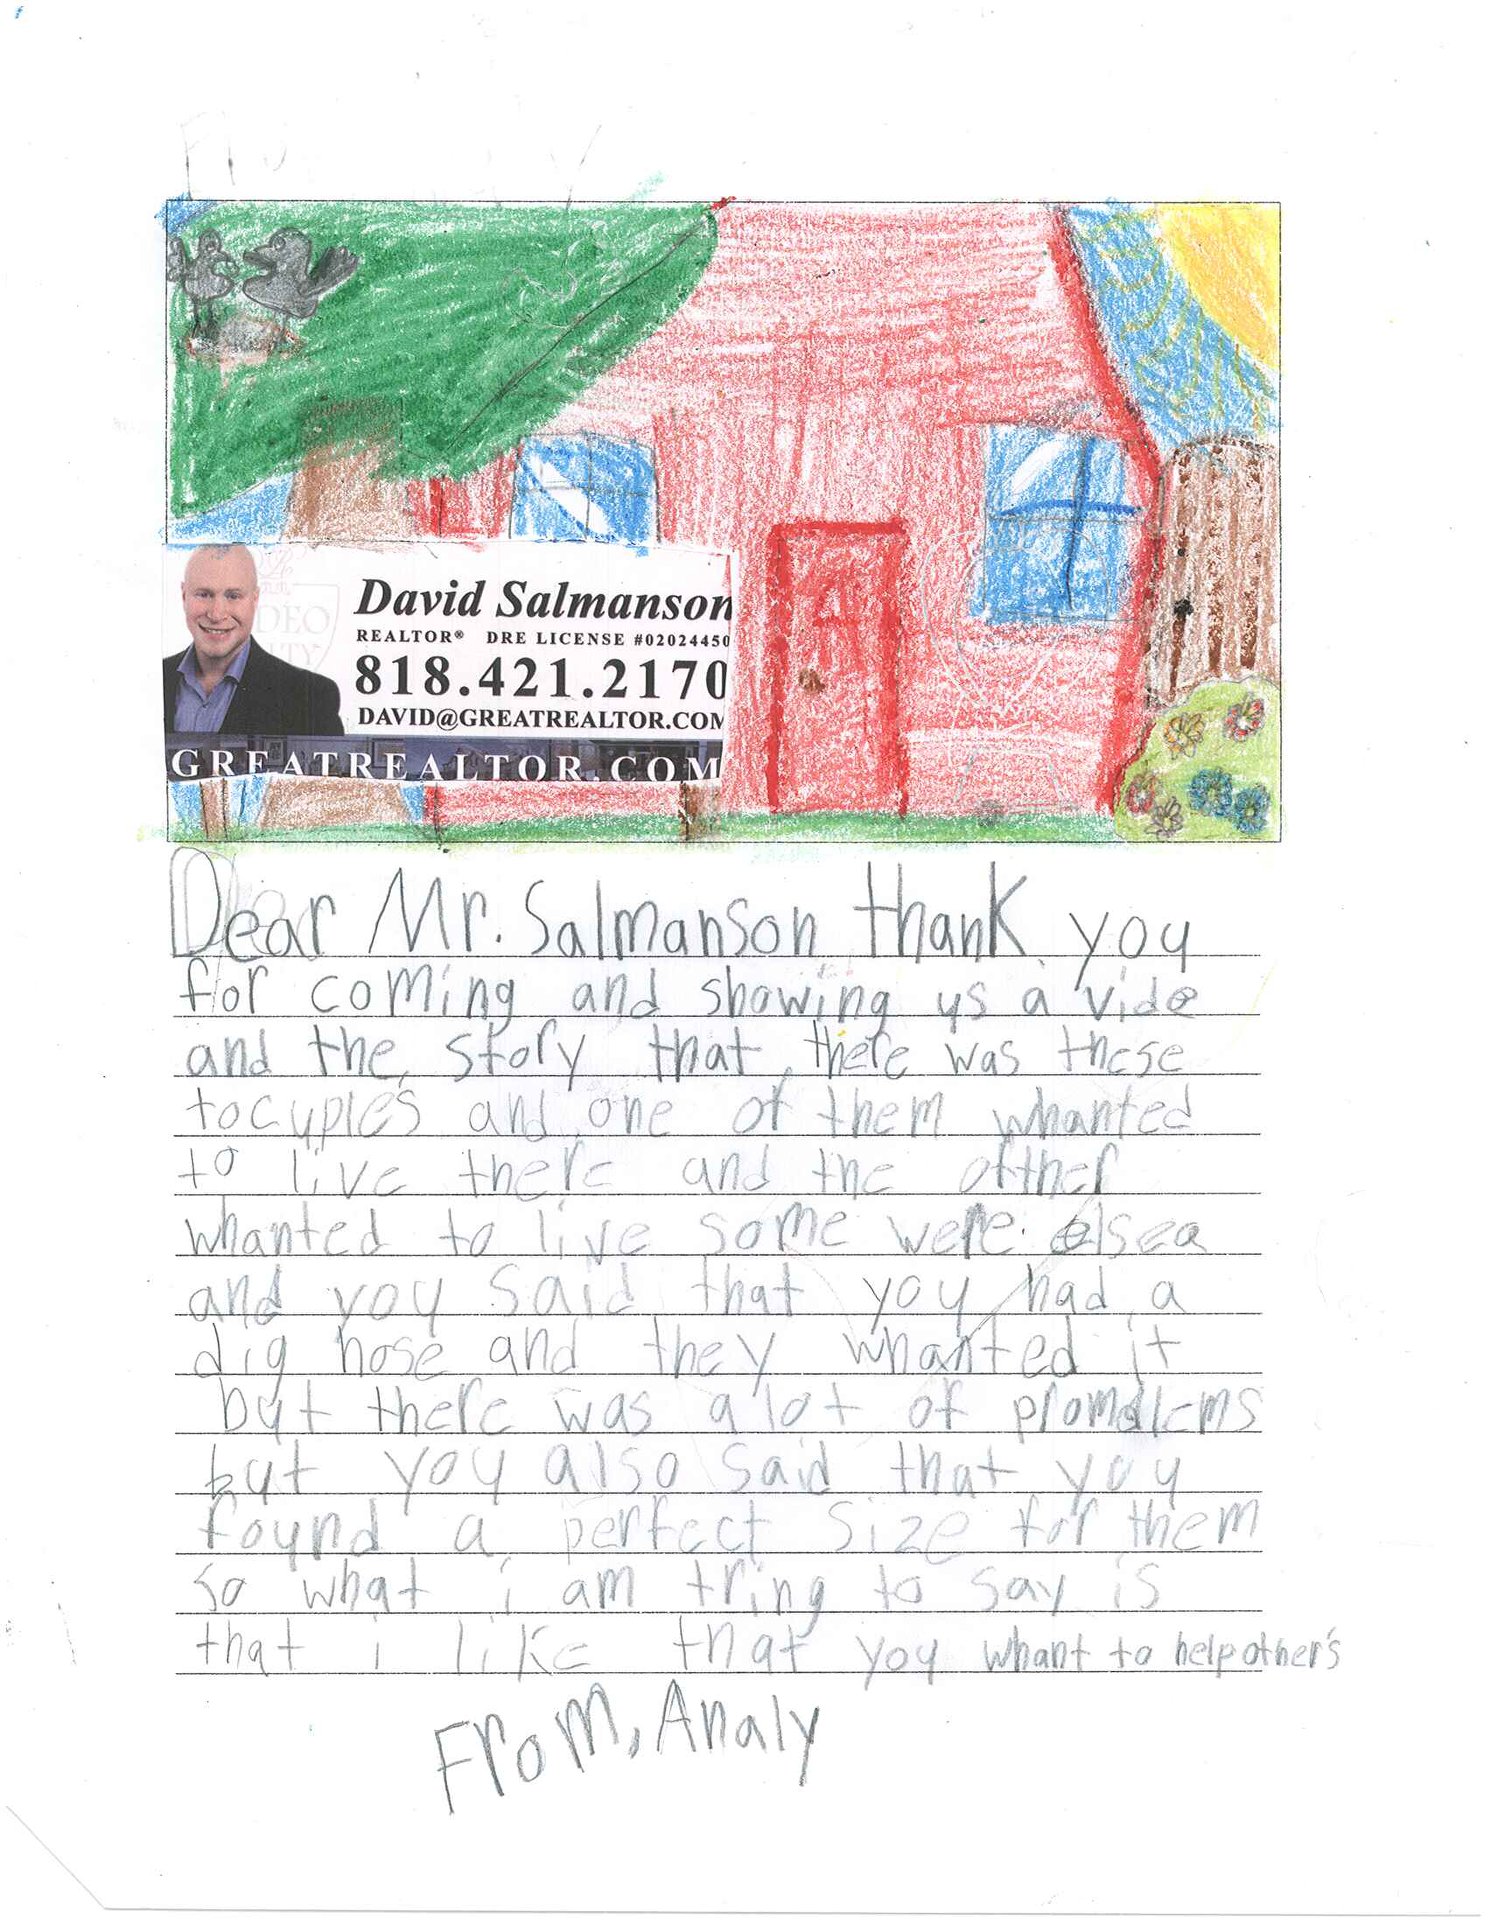 David Salmanson
REALTOR® DRE LICENSE #02024450
818.421.2170
DAVID@GREATREALTOR.COM
GREATREALTOR.COM
Dear Mr. Salmanson thank you
for coming and showing us a vide
and the story that there was these
tocuples and one of them whanted
to live there and the ofther
whanted to live some were elsea
and you said that you had a
dig hose and they whanted it
but there was alot of promdlems
but you also said that you
found a perfect size for them
so what i am tring to say is
that i like that you whant to help other's
From, Analy